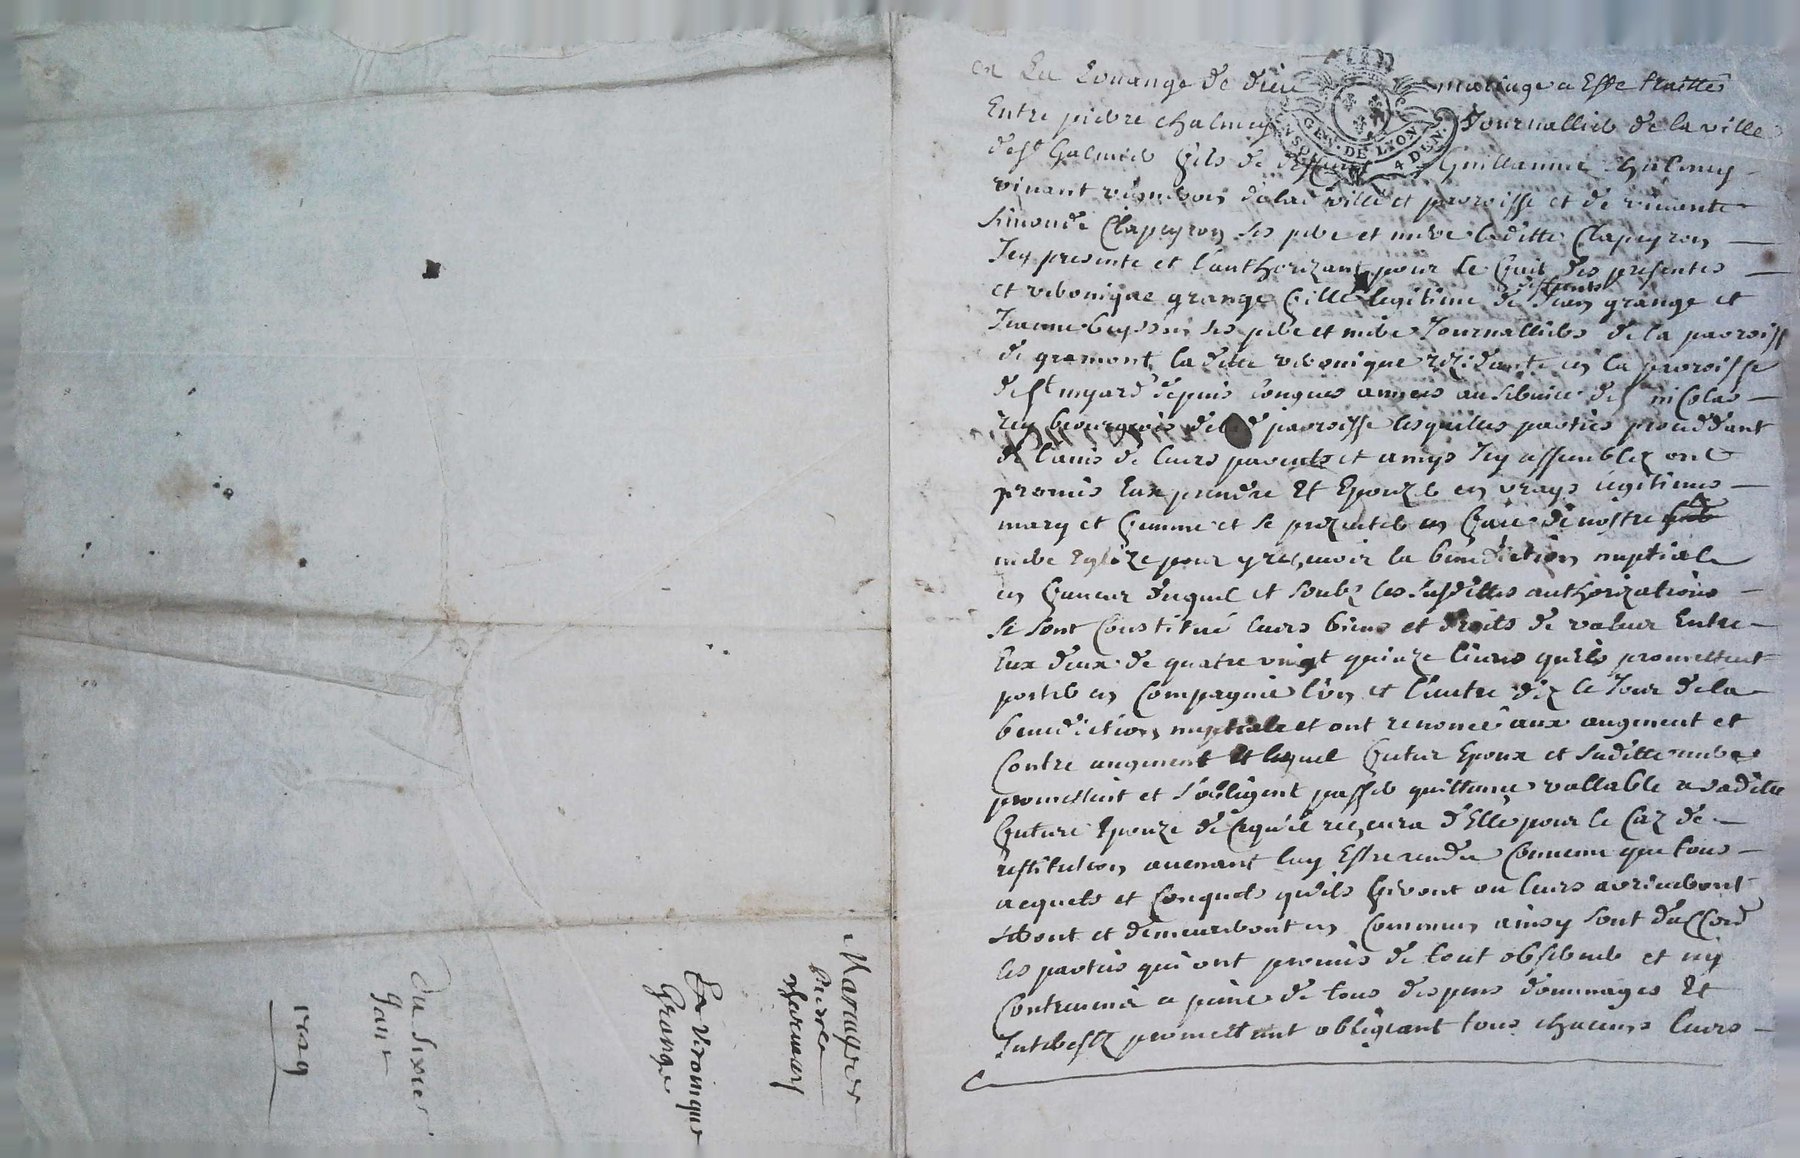 Mariage
pierre
charmey
Et Veronique
Grange
Du sixie
janr
1729
A La Louange de dieu mariage a Esté traitté
GEN. DE LYON
4 DEN.
Entre pierre chalmey Journallier de la ville
de St Galmier fils de deffunt Guillaume chalmey
vivant vigneron de lad ville et parroisse et de vivante
Simonde Clapeyron ses pere et mere laditte Clapeyron
Icy presente et l'authorizant pour le fait des presentes
et veronique grange fille legitime de deffunts Jean grange et
Jeanne ses pere et mere Journalliers de la parroisse
de gramont ladite veronique rezidante en la parroisse
de St mijard depuis longues annees au service de Sr nicolas
bourgeois de lad parroisse lesquelles parties proceddant
de l'avis de leurs parents et amys Icy assemblez ont
promis Eux prendre Et Epouzer en vrays legitimes
mary et femme et se prezenter en face de nostre Ste
mere Eglize pour y recevoir la benediction nuptiale
en faveur duquel et soubz les susdittes authorizations
se sont Constitué leurs biens et droits de valeur Entre
Eux deux de quatre vingt quinze livres qu'ils promettent
porter en Compagnie l'un et l'autre dez le Jour de la
benediction nuptiale et ont renoncé aux augment et
Contre augment Et lequel futur Epoux et saditte mere
promettent et s'obligent passer quittance vallable a saditte
future Epouze de Ce qu'il recevra d'Elle pour le Caz de
restitution avenant luy Estre rendu Convenu que tous
acquets et Conquets qu'ils feront ou leurs arriveront
seront et demeureront en Commun ainsy sont d'acCord
les parties qui ont promis de tout observer et ny
Contrevenir a peine de tous despens dommages Et
Interestz promettant obligeant tous chacuns leurs